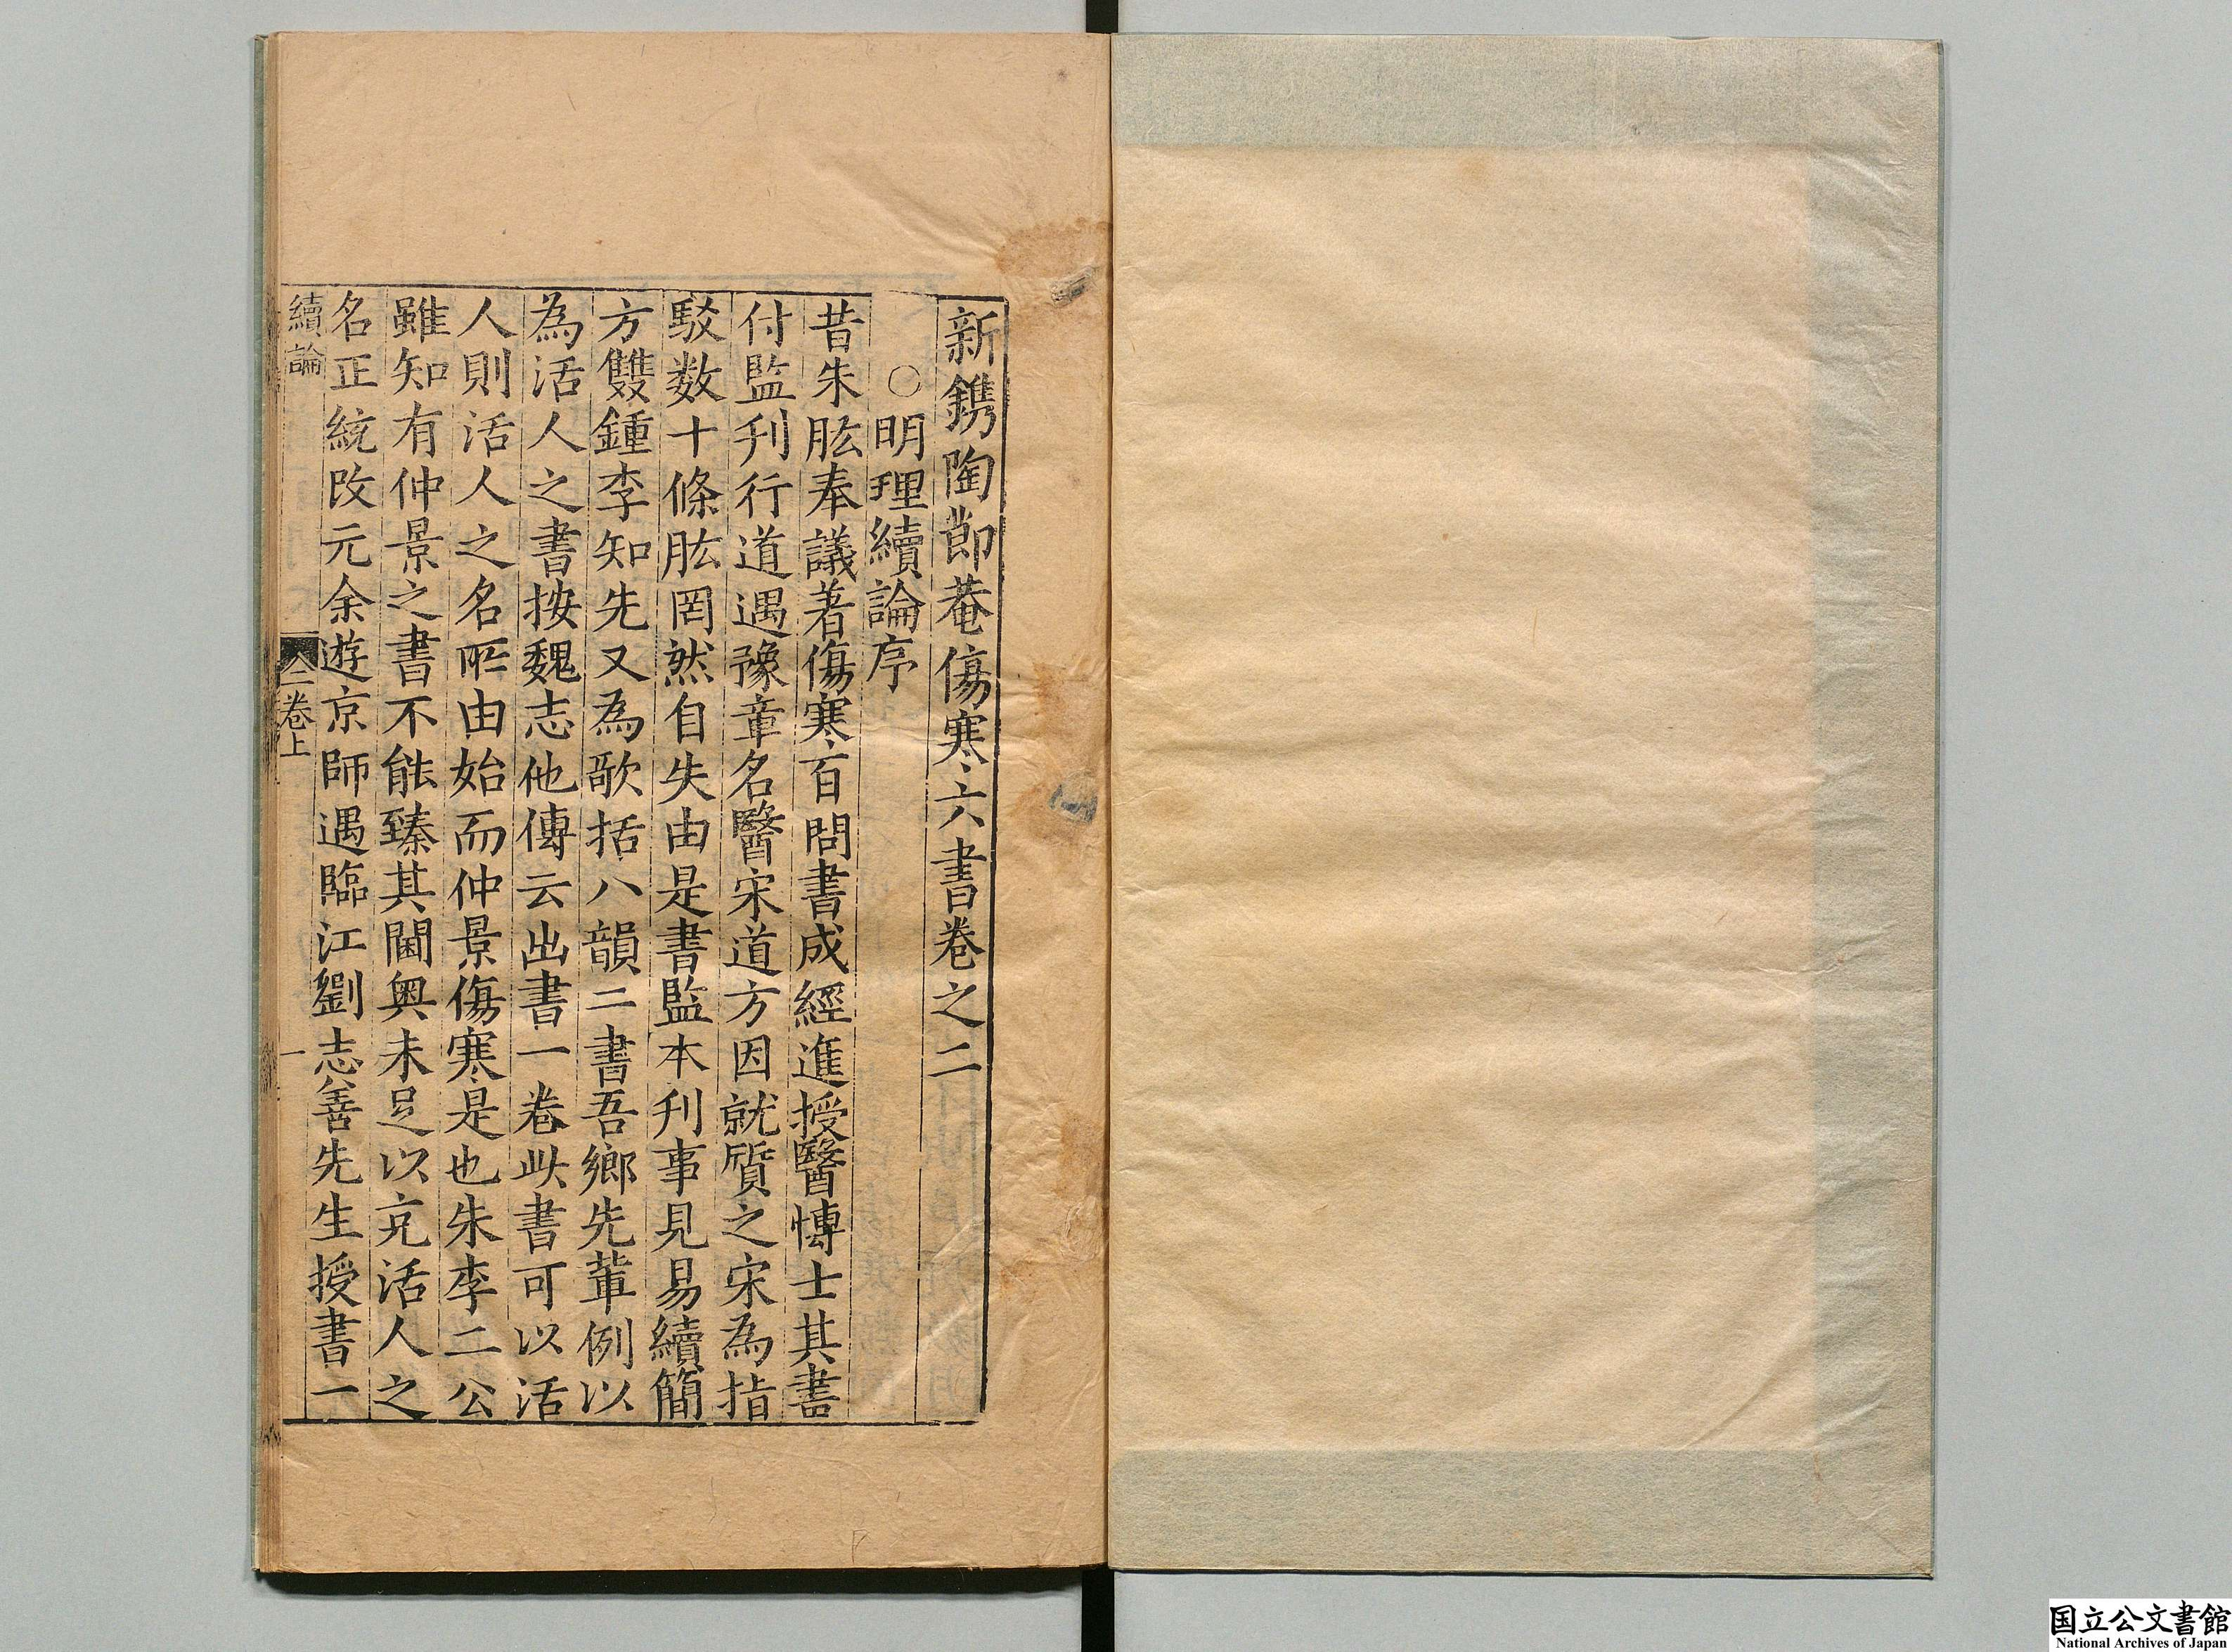 新鐫陶節菴傷寒六書卷之二
○明理續論序
昔朱肱奉議著傷寒百問書成經進授醫博士其書
付監刋行道遇豫章名醫宋道方因就質之宋為指
駁数十條肱罔然自失由是書監本刋事見易續簡
方雙鍾李知先又為歌括八韻二書吾鄉先輩例以
為活人之書按魏志他傳云出書一卷此書可以活
人則活人之名所由始而仲景傷寒是也朱李二公
雖知有仲景之書不能臻其閫奥未足以充活人之
名正統改元余遊京師遇臨江劉志善先生授書一
續論
二卷上
一
国立公文書館
National Archives of Japan